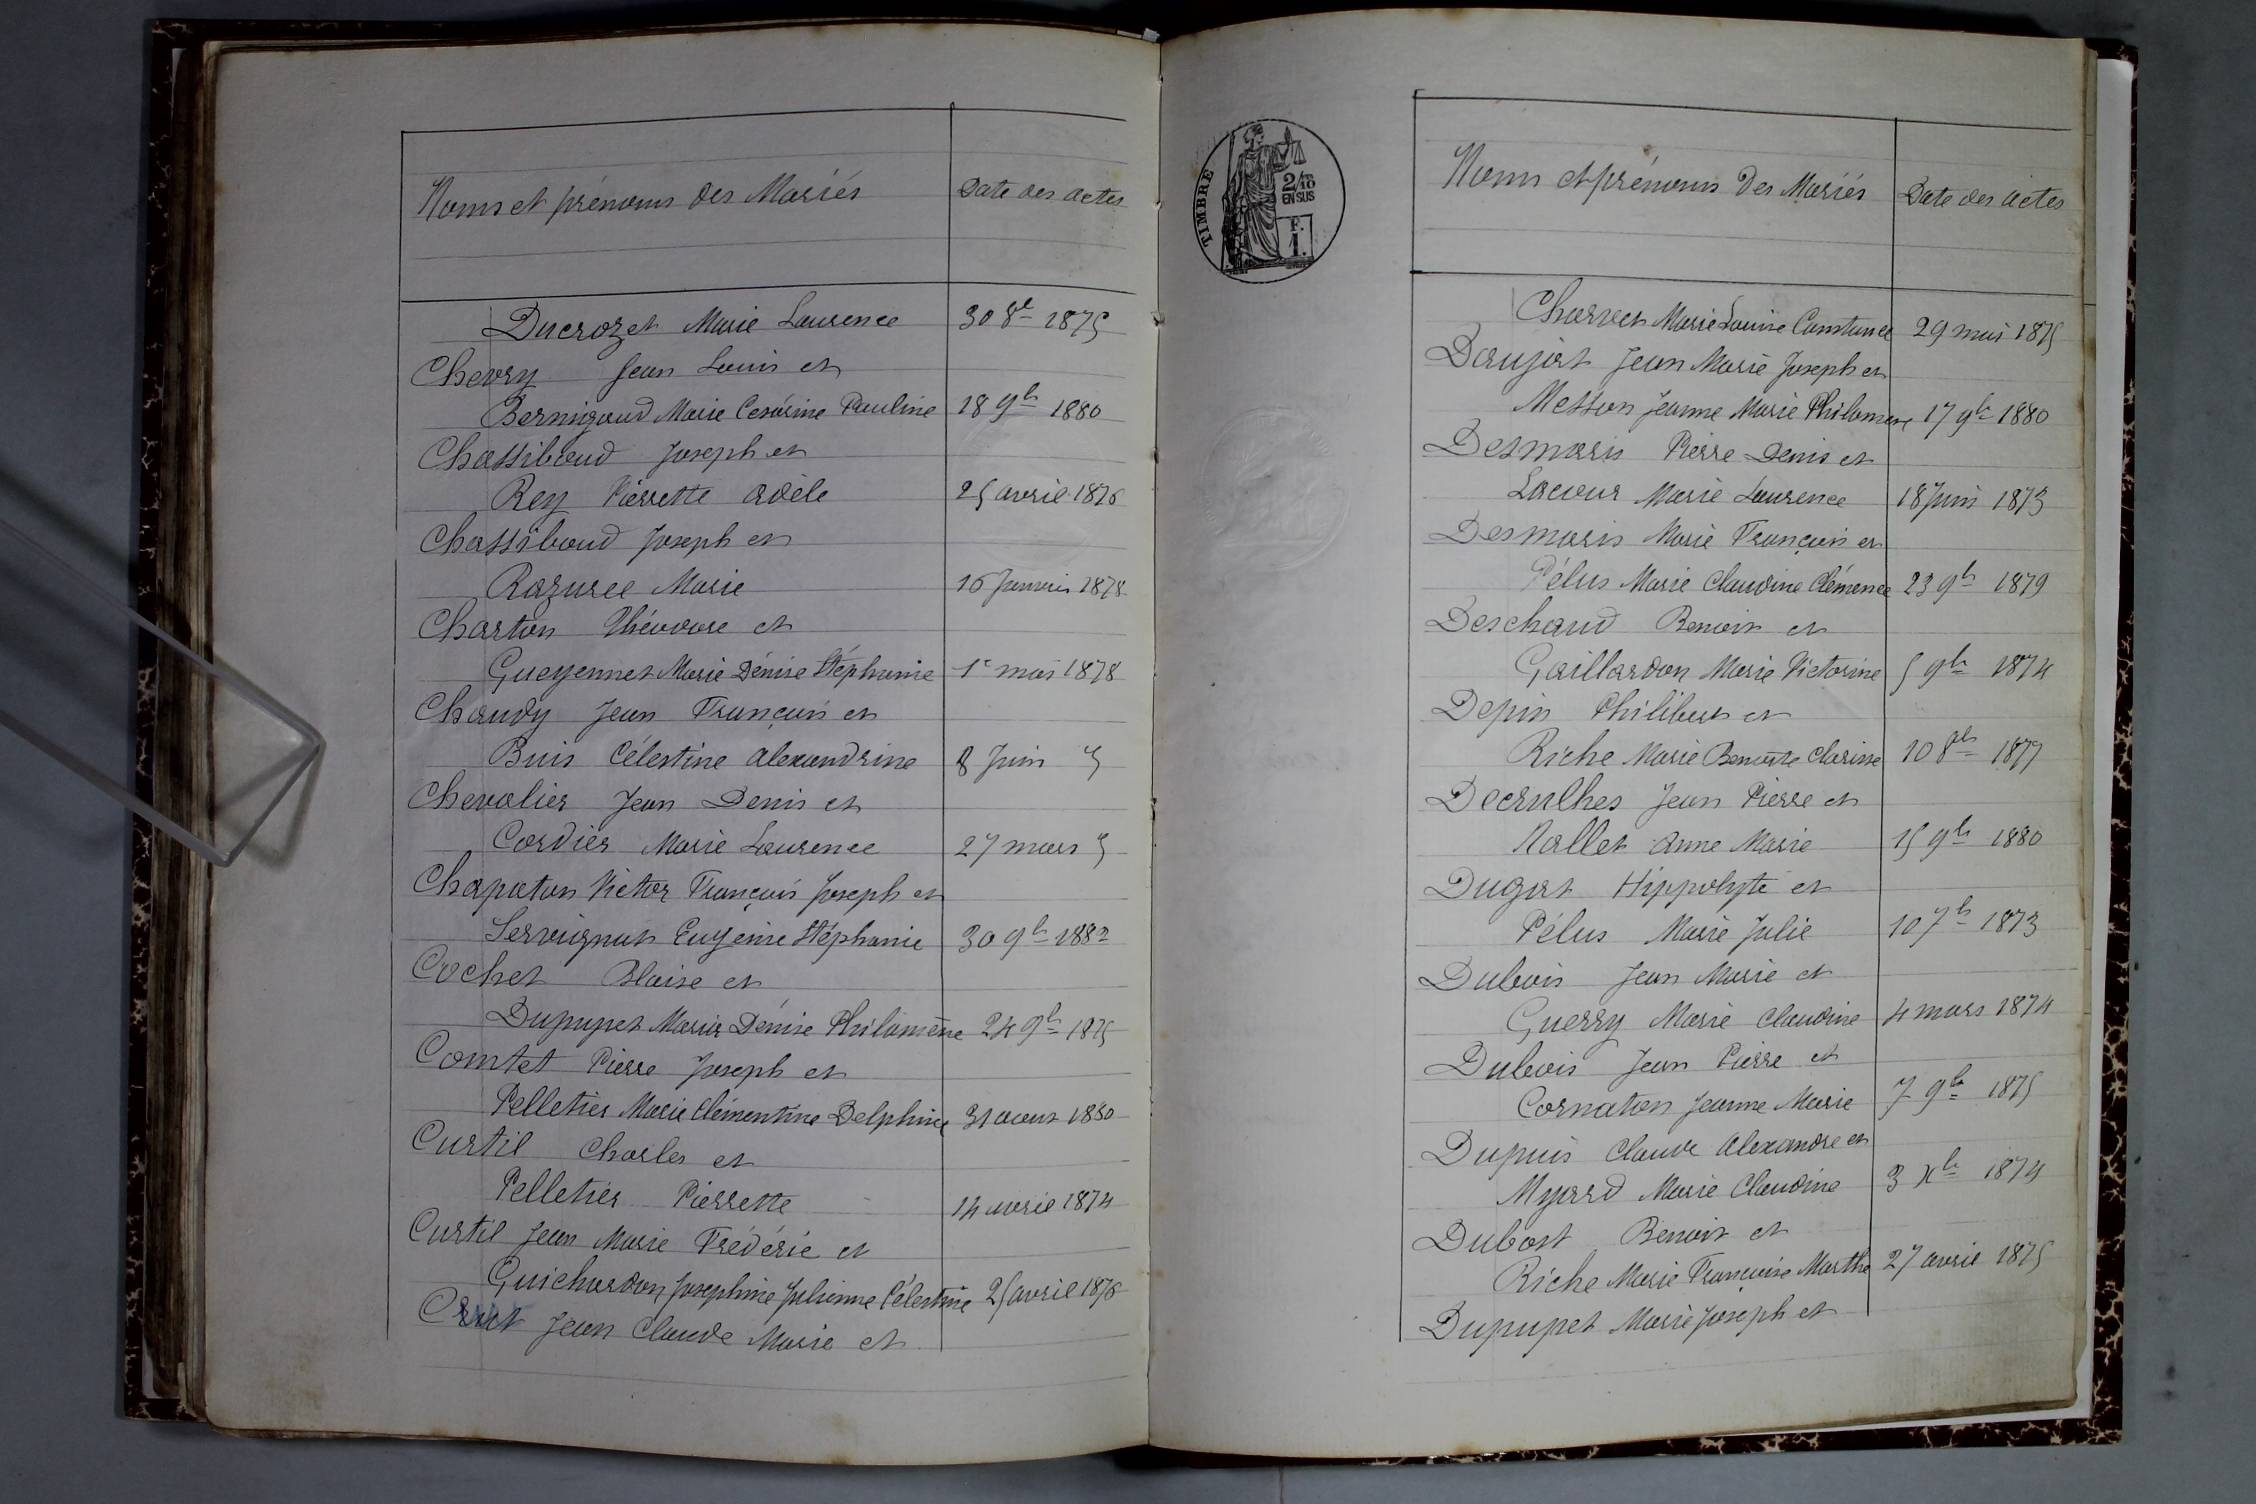 Noms et prénoms des Mariés
Date des actes
Ducrozet Marie Laurence 30 8e 1875
Chevry Jean Louis et
Bernigaud Marie Cesárine Pauline 18 9b 1880
Chassibaud Joseph et
Rey Pierrette adèle 25 avril 1876
Chassibaud Joseph et
Razuree Marie 16 Janvier 1878
Charton Théodore et
Gueyennet Marie Dénise Stéphanie 1e mai 1878
Chaudy Jean François et
Buis Célestine alexandrine 8 Juin 5
Chevalier Jean Denis et
Cordier Marie Laurence 27 mars 5
Chapaton Victor François Joseph et
Servignat Eugénie Stéphanie 30 9b 1882
Cochet Blaise et
Dupupet Maria Dénise Philomène 24 9b 1875
Comtet Pierre Joseph et
Pelletier Marie Clémentine Delphine 31 aout 1880
Curtil Charles et
Pelletier Pierrette 14 avril 1874
Curtil Jean Marie Frédéric et
Guichardon Josephine Julienne Célestine 25 avril 1876
Jean Claude Marie et
TIMBRE
2/10
EN SUS
F.
1.
Noms et prénoms des Mariés
Date des actes
Charvet Marie Louise Constance 29 mai 1875
Daujat Jean Marie Joseph et
Messon Jeanne Marie Philomene 17 9b 1880
Desmaris Pierre Denis et
Lacour Marie Laurence 18 Juin 1873
Desmaris Marie François et
Pélus Marie Claudine Clémence 23 9b 1879
Deschaud Benoit et
Gaillardon Marie Victorine 5 9b 1874
Depin Philibert et
Riche Marie Benoite Clarisse 10 8b 1877
Decrulhes Jean Pierre et
Nallet anne Marie 15 9b 1880
Dugat Hippolyte et
Pélus Marie Julie 10 7b 1873
Dubois Jean Marie et
Guerry Marie Claudine 4 mars 1874
Dubois Jean Pierre et
Cornaton Jeanne Marie 7 9b 1875
Dupuis Claude Alexandre et
Myard Marie Claudine 3 Xb 1874
Dubost Benoit et
Riche Marie Françoise Marthe 27 avril 1875
Dupupet Marie Joseph et